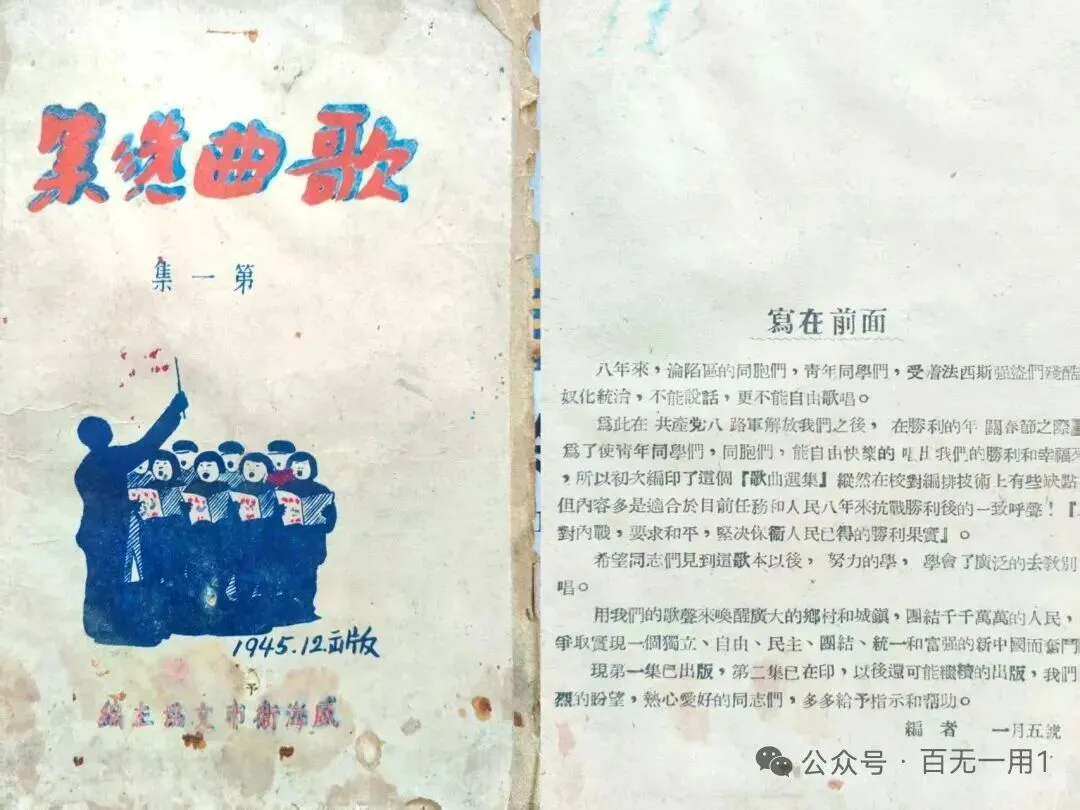 歌曲选集
第一集
1945.12出版
予
威海衛市文協主編
寫在前面
八年來,淪陷區的同胞們,青年同學們,受着法西斯强盜們殘酷
奴化統治,不能說話,更不能自由歌唱。
爲此在 共產党八 路軍解放我們之後, 在勝利的年 關春節之際
爲了使靑年同學們,同胞們,能自由快樂的 唱出我們的勝利和幸福
,所以初次編印了這個『歌曲選集』縱然在校對編排技術上有些缺點
但內容多是適合於目前任務和人民八年來抗戰勝利後的一致呼聲!『
對內戰,要求和平,堅决保衞人民已得的勝利果實』。
希望同志們見到這歌本以後, 努力的學, 學會了廣泛的去敎別
唱。
用我們的歌聲來喚醒廣大的鄉村和城鎭,團結千千萬萬的人民,
爭取實現一個獨立、自由、民主、團結、統一和富强的新中國而奮鬥
現第一集已出版,第二集已在印,以後還可能繼續的出版,我們
烈的盼望,熱心愛好的同志們,多多給予指示和帮助。
編 者 一月五號
公众号 · 百无一用1